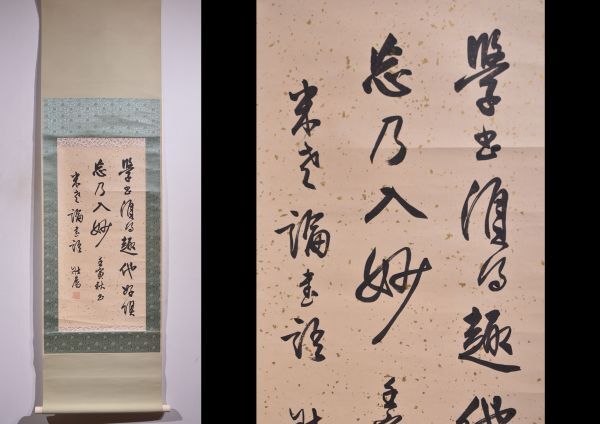 學書須得趣他好俱
忘乃入妙 壬寅秋書
米老論書語 壯為
學書須得趣他
忘乃入妙 壬寅
米老論書語 壯